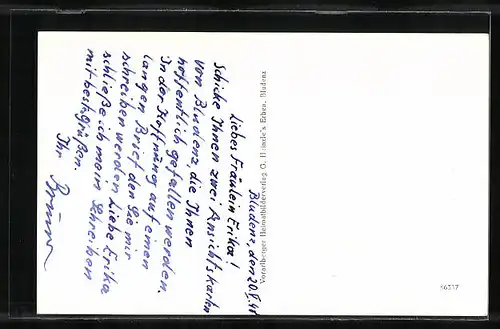 Bludenz, den 20.
Liebes Fräulein Erika!
Schicke Ihnen zwei Ansichtskarten
von Bludenz, die Ihnen
hoffentlich gefallen werden.
In der Hoffnung auf einen
langen Brief den Sie mir
schreiben werden Liebe Erika
schließe ich mein Schreiben
mit best. Grüßen.
Ihr
Vorarlberger Heimatbilderverlag G. Heinzle's Erben, Bludenz
86317